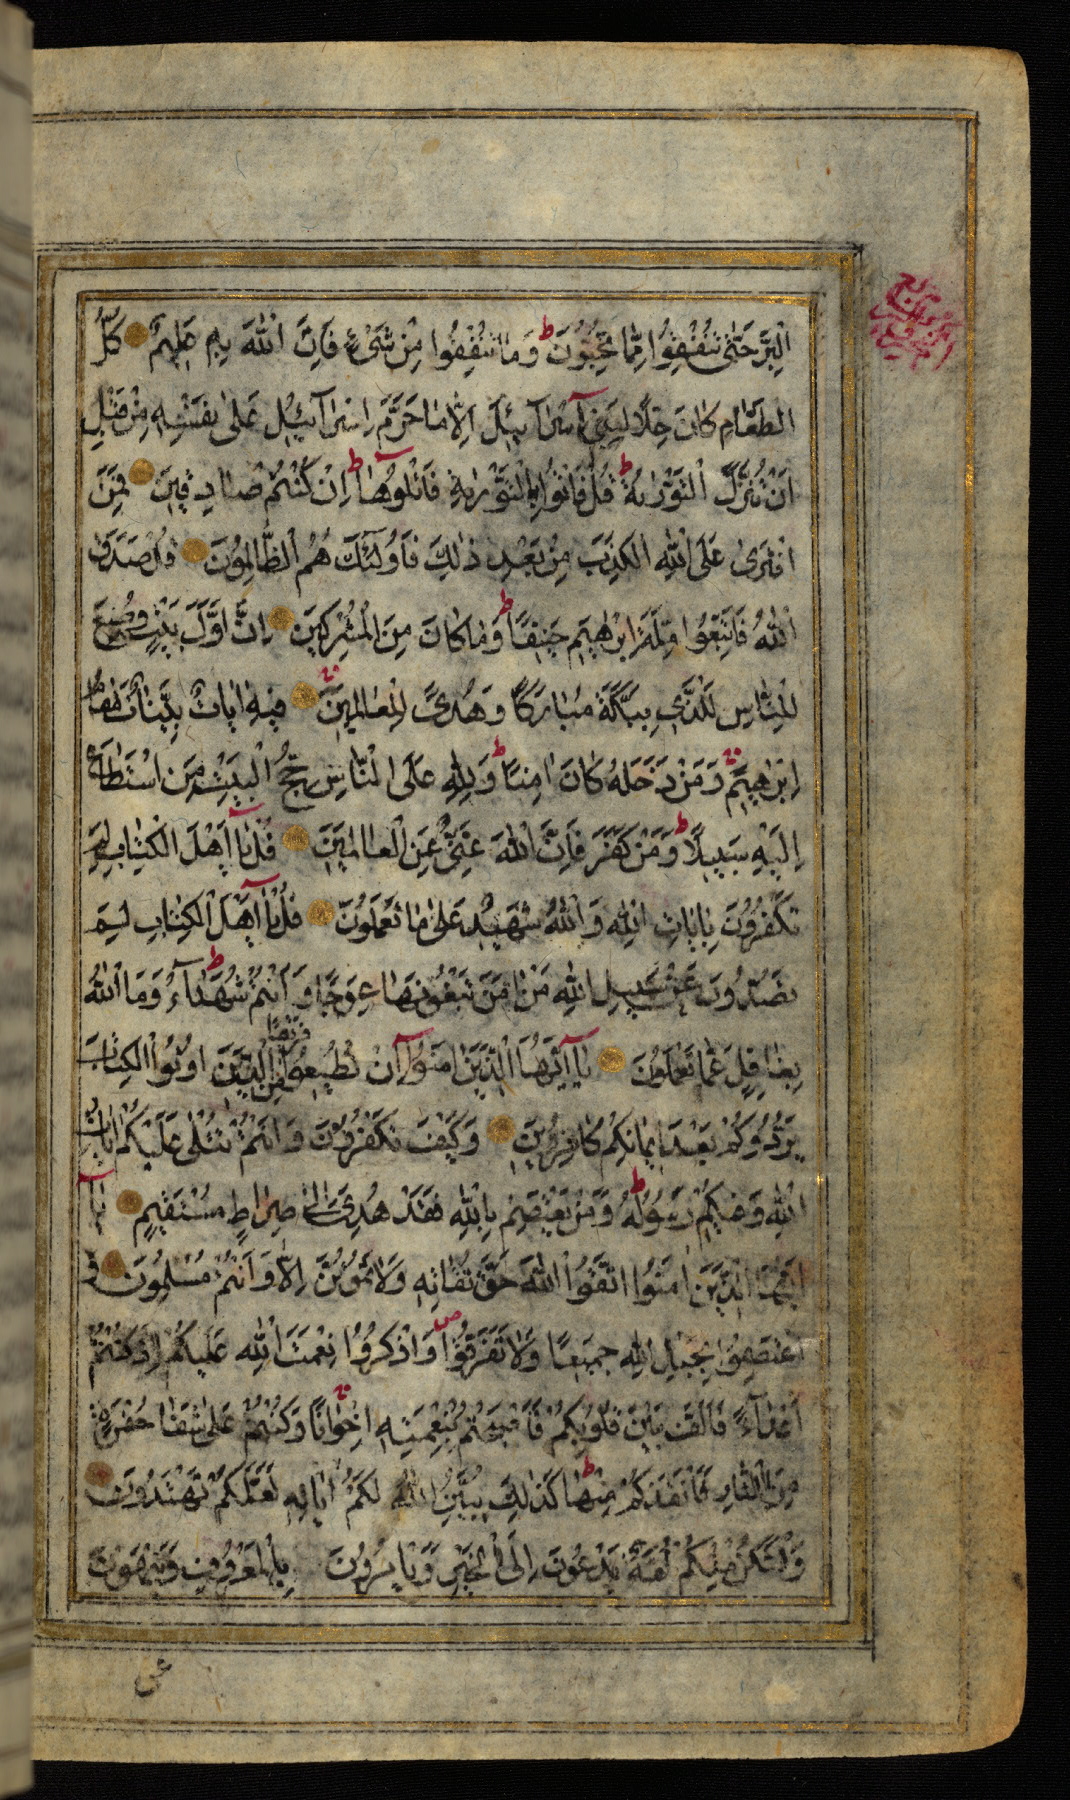 الْبِرَّ حَتّٰى تُنْفِقُوا مِمَّا تُحِبُّونَ ط وَمَا تُنْفِقُوا مِنْ شَيْءٍ فَاِنَّ اللّٰهَ بِهِ عَلِيمٌ كُلُّ
الطَّعَامِ كَانَ حِلًّا لِبَنِي اِسْرَآئِيلَ اِلَّا مَا حَرَّمَ اِسْرَآئِيلُ عَلٰى نَفْسِهِ مِنْ قَبْلِ
اَنْ تُنَزَّلَ التَّوْرٰيةُ ط قُلْ فَأْتُوا بِالتَّوْرٰيةِ فَاتْلُوهَا ط اِنْ كُنْتُمْ صَادِقِينَ فَمَنِ
افْتَرٰى عَلَى اللّٰهِ الْكَذِبَ مِنْ بَعْدِ ذٰلِكَ فَاُولٰٓئِكَ هُمُ الظَّالِمُونَ قُلْ صَدَقَ
اللّٰهُ فَاتَّبِعُوا مِلَّةَ اِبْرٰهِيمَ حَنِيفًا ط وَمَا كَانَ مِنَ الْمُشْرِكِينَ اِنَّ اَوَّلَ بَيْتٍ وُضِعَ
لِلنَّاسِ لَلَّذِي بِبَكَّةَ مُبَارَكًا وَهُدًى لِلْعَالَمِينَ فِيهِ اٰيَاتٌ بَيِّنَاتٌ مَقَامُ
اِبْرٰهِيمَ وَمَنْ دَخَلَهُ كَانَ اٰمِنًا ط وَلِلّٰهِ عَلَى النَّاسِ حِجُّ الْبَيْتِ مَنِ اسْتَطَاعَ
اِلَيْهِ سَبِيلًا ط وَمَنْ كَفَرَ فَاِنَّ اللّٰهَ غَنِيٌّ عَنِ الْعَالَمِينَ قُلْ يَا اَهْلَ الْكِتَابِ لِمَ
تَكْفُرُونَ بِاٰيَاتِ اللّٰهِ وَاللّٰهُ شَهِيدٌ عَلٰى مَا تَعْمَلُونَ قُلْ يَا اَهْلَ الْكِتَابِ لِمَ
تَصُدُّونَ عَنْ سَبِيلِ اللّٰهِ مَنْ اٰمَنَ تَبْغُونَهَا عِوَجًا وَاَنْتُمْ شُهَدَآءُ ط وَمَا اللّٰهُ
بِغَافِلٍ عَمَّا تَعْمَلُونَ يَآ اَيُّهَا الَّذِينَ اٰمَنُوا اِنْ تُطِيعُوا فَرِيقًا مِنَ الَّذِينَ اُوتُوا الْكِتَابَ
يَرُدُّوكُمْ بَعْدَ اِيمَانِكُمْ كَافِرِينَ وَكَيْفَ تَكْفُرُونَ وَاَنْتُمْ تُتْلٰى عَلَيْكُمْ اٰيَاتُ
اللّٰهِ وَفِيكُمْ رَسُولُهُ ط وَمَنْ يَعْتَصِمْ بِاللّٰهِ فَقَدْ هُدِيَ اِلٰى صِرَاطٍ مُسْتَقِيمٍ يَآ
اَيُّهَا الَّذِينَ اٰمَنُوا اتَّقُوا اللّٰهَ حَقَّ تُقَاتِهِ وَلَا تَمُوتُنَّ اِلَّا وَاَنْتُمْ مُسْلِمُونَ وَ
اعْتَصِمُوا بِحَبْلِ اللّٰهِ جَمِيعًا وَلَا تَفَرَّقُوا ص وَاذْكُرُوا نِعْمَتَ اللّٰهِ عَلَيْكُمْ اِذْ كُنْتُمْ
اَعْدَآءً فَاَلَّفَ بَيْنَ قُلُوبِكُمْ فَاَصْبَحْتُمْ بِنِعْمَتِهِ اِخْوَانًا وَكُنْتُمْ عَلٰى شَفَا حُفْرَةٍ
مِنَ النَّارِ فَاَنْقَذَكُمْ مِنْهَا ط كَذٰلِكَ يُبَيِّنُ اللّٰهُ لَكُمْ اٰيَاتِهِ لَعَلَّكُمْ تَهْتَدُونَ
وَلْتَكُنْ مِنْكُمْ اُمَّةٌ يَدْعُونَ اِلَى الْخَيْرِ وَيَأْمُرُونَ بِالْمَعْرُوفِ وَيَنْهَوْنَ